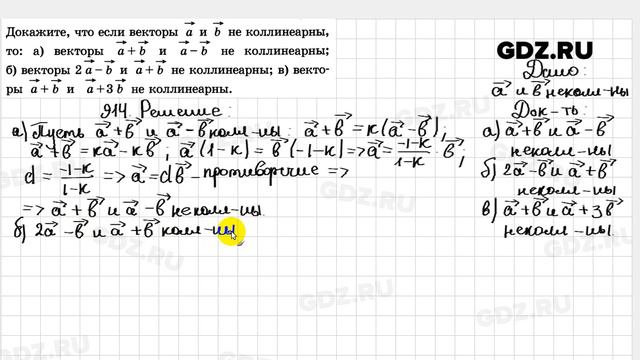 Докажите, что если векторы a⃗ и b⃗ не коллинеарны,
то: а) векторы a⃗+b⃗ и a⃗−b⃗ не коллинеарны;
б) векторы 2a⃗−b⃗ и a⃗+b⃗ не коллинеарны; в) векто-
ры a⃗+b⃗ и a⃗+3b⃗ не коллинеарны.
GDZ.RU
Дано:
a⃗ и b⃗ неколл-ны
Док-ть:
а) a⃗+b⃗ и a⃗−b⃗
неколл-ны
б) 2a⃗−b⃗ и a⃗+b⃗
неколл-ны
в) a⃗+b⃗ и a⃗+3b⃗
неколл-ны.
914. Решение:
а) Пусть a⃗+b⃗ и a⃗−b⃗ колл-ны: a⃗+b⃗=к(a⃗−b⃗);
a⃗+b⃗=кa⃗−кb⃗; a⃗(1−к)=b⃗(−1−к)=>a⃗=(−1−к)/(1−к)·b⃗;
d=(−1−к)/(1−к) => a⃗=db⃗ – противоричие =>
=> a⃗+b⃗ и a⃗−b⃗ неколл-ны
б) 2a⃗−b⃗ и a⃗+b⃗ колл-ны
GDZ.RU
GDZ.RU
GDZ.RU
GDZ.RU
GDZ.RU